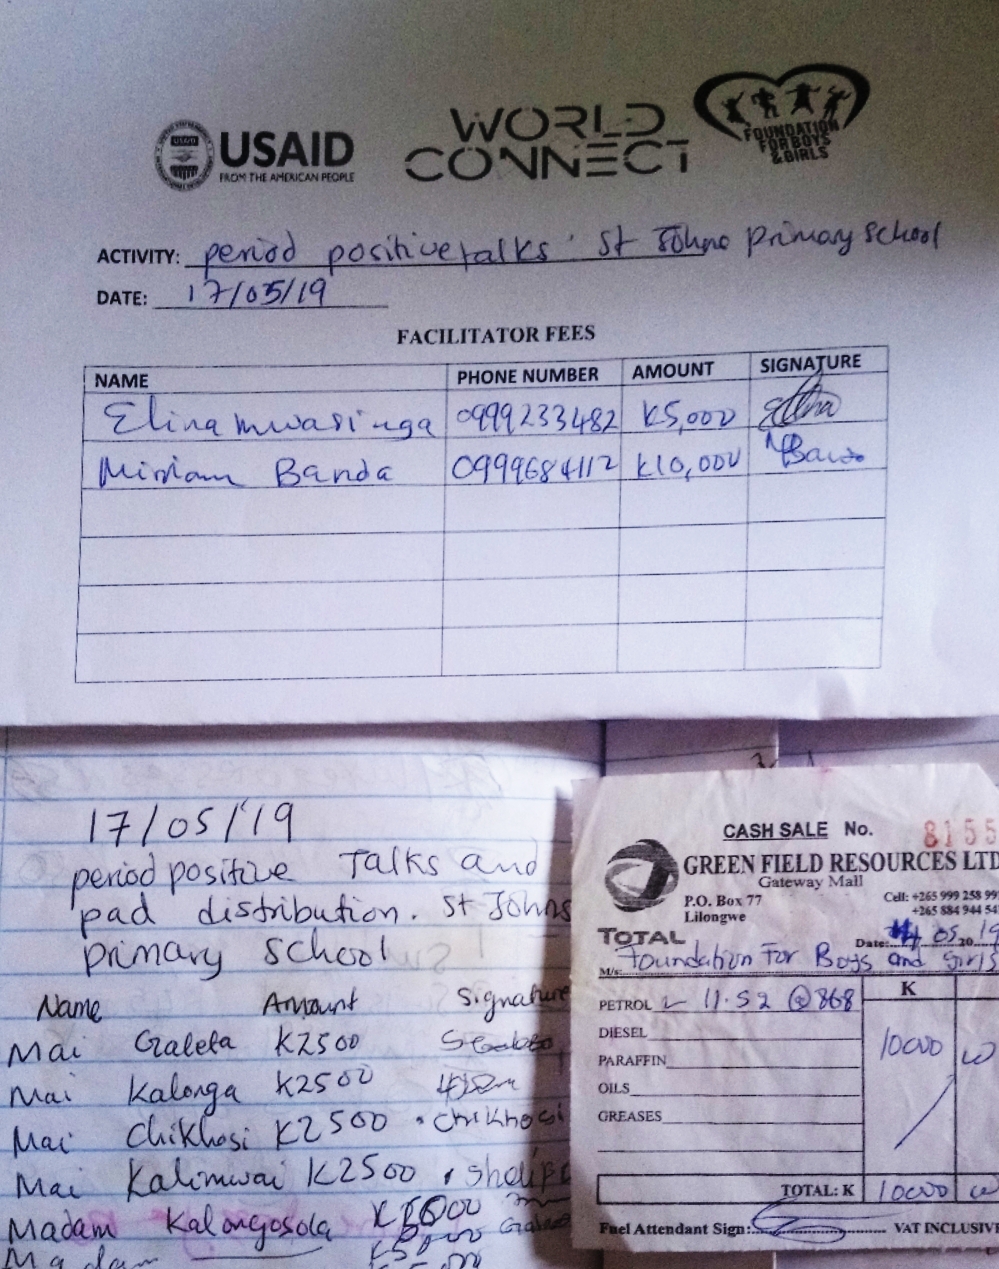 USAID
FROM THE AMERICAN PEOPLE
WORLD
CONNECT
FOUNDATION
FOR BOYS
& GIRLS
ACTIVITY: period positive talks St Johns primary school
DATE: 17/05/19
FACILITATOR FEES
NAME PHONE NUMBER AMOUNT SIGNATURE
Elina mwasinga 0999233482 K5,000
Miriam Banda 0999684112 K10,000
17/05/19
period positive Talks and
pad distribution. St Johns
primary school
Name Amount Signature
Mai Galeta K2500
Mai Kalonga K2500
Mai Chikhosi K2500 Chikhosi
Mai Kalimwai K2500
Madam Kalongosola
Madam
CASH SALE No. 8155
GREEN FIELD RESOURCES LTD
Gateway Mall
P.O. Box 77
Lilongwe
Cell: +265 999 258 99
+265 884 944 54
TOTAL
Date: 05 2019
M/s: Foundation For Boys and Girls
K
PETROL 11.52 @ 868
DIESEL
PARAFFIN
OILS
GREASES
10000
TOTAL: K 10000
Fuel Attendant Sign: VAT INCLUSIVE